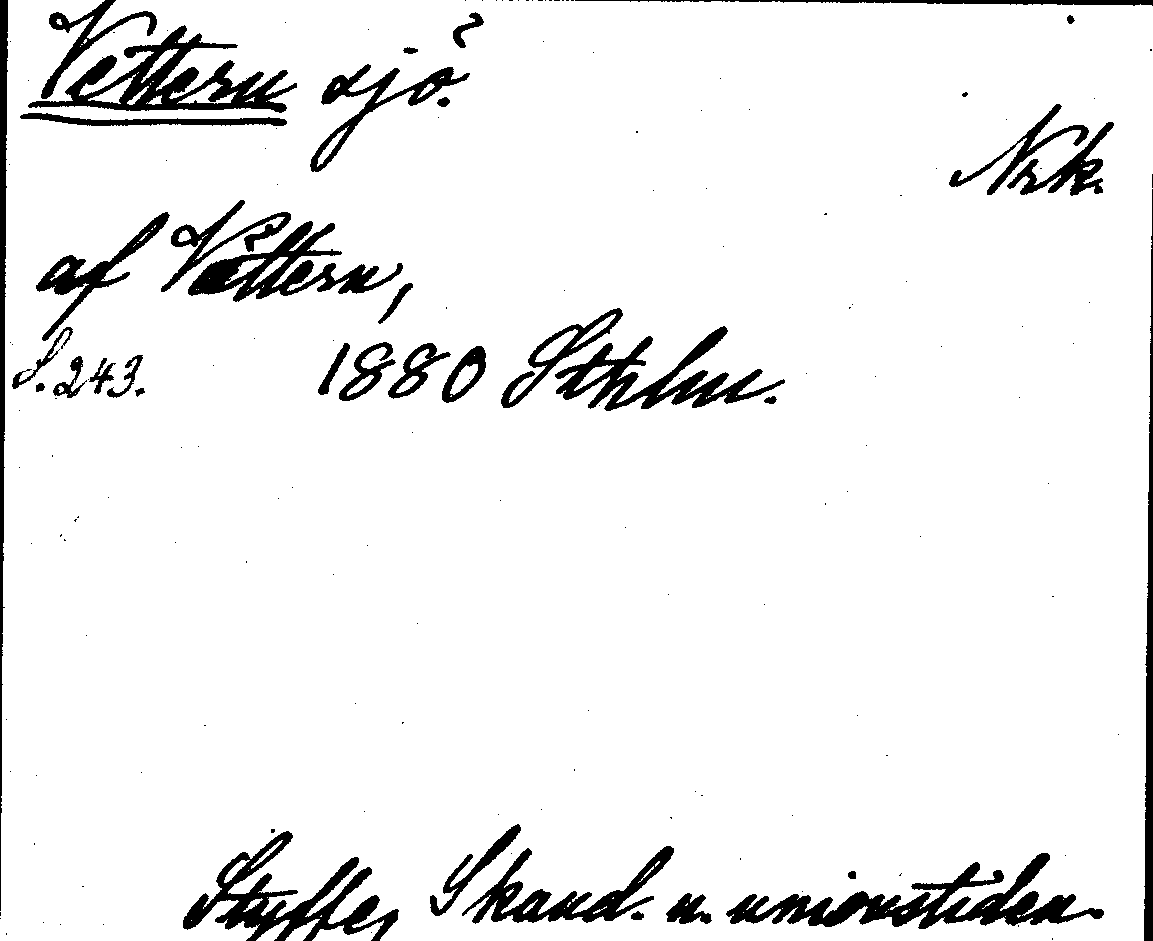 Vettern sjö.
Nrk.
af Vettern,
S. 243. 1880 Sthlm.
Styffe, Skand. u. unionstiden.